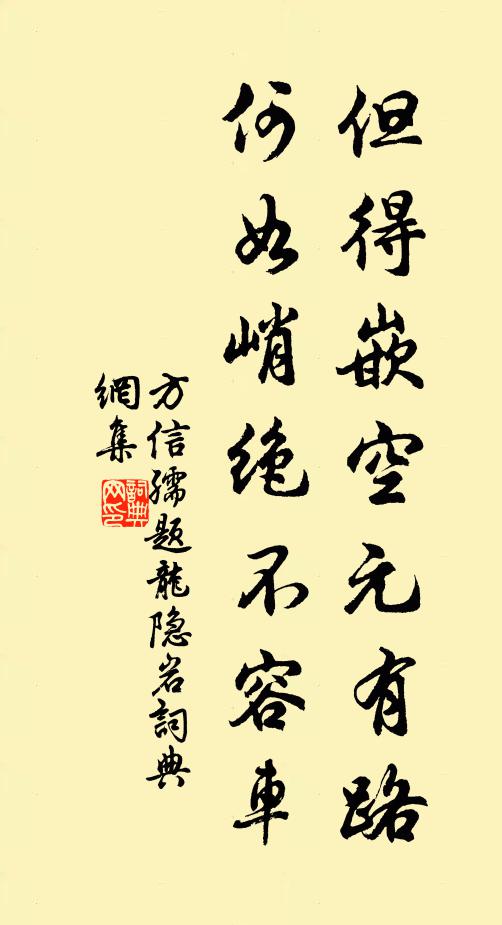 但得嵌空元有路
何如峭絶不容車
方信孺題龍隐岩詞典
網集
詞典
网印